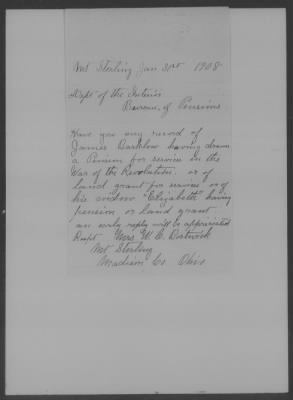 Mt Sterling Jan 31st 1908
Dept of the Interior
Bureau of Pensions
Have you any record of
James Barklow having drawn
a Pension for service in the
War of the Revolution. or of
land grant for service or of
his widow "Elizabeth" having
pension or land grant
an early reply will be appreciated
Respt Mrs W. C. Bostwick
Mt Sterling
Madison Co Ohio